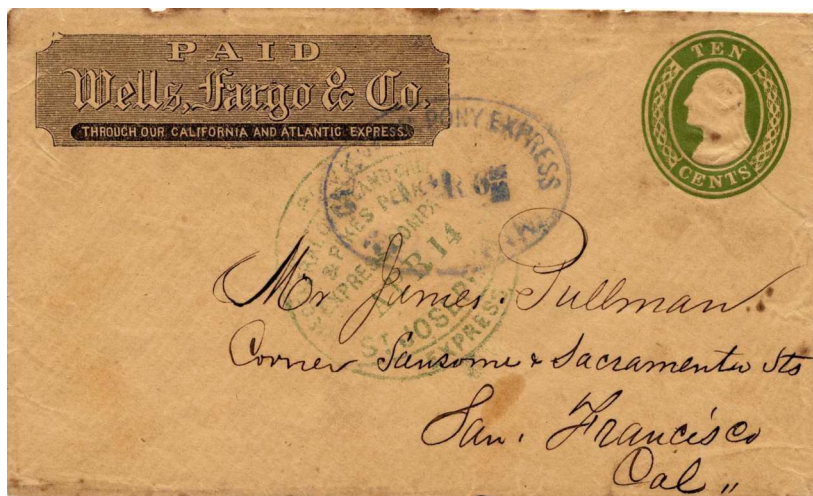 PAID
Wells, Fargo & Co.
THROUGH OUR CALIFORNIA AND ATLANTIC EXPRESS.
TEN
CENTS
PONY EXPRESS
& PIKES PEAK
EXPRESS COMPANY
APR 14
ST JOSEPH
EXPRESS
Mr James Pullman.
Corner Sansome & Sacramento Sts
San. Francisco
Cal „